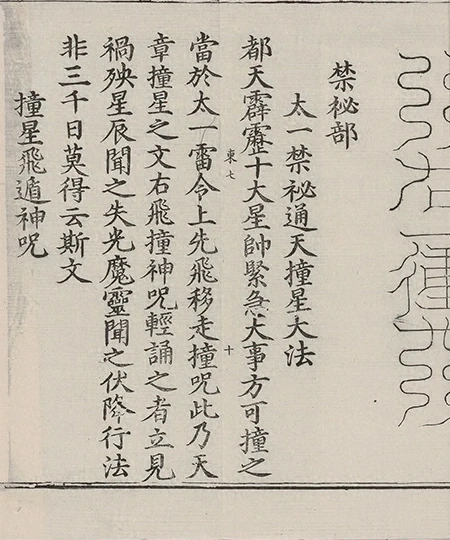 禁祕部
太一禁祕通天撞星大法
都天霹靂十大星帥緊急大事方可撞之
東七 十
當於太一雷令上先飛移走撞呪此乃天
章撞星之文右飛撞神呪輕誦之者立見
禍殃星辰聞之失光魔靈聞之伏降行法
非三千日莫得云斯文
撞星飛遁神呪